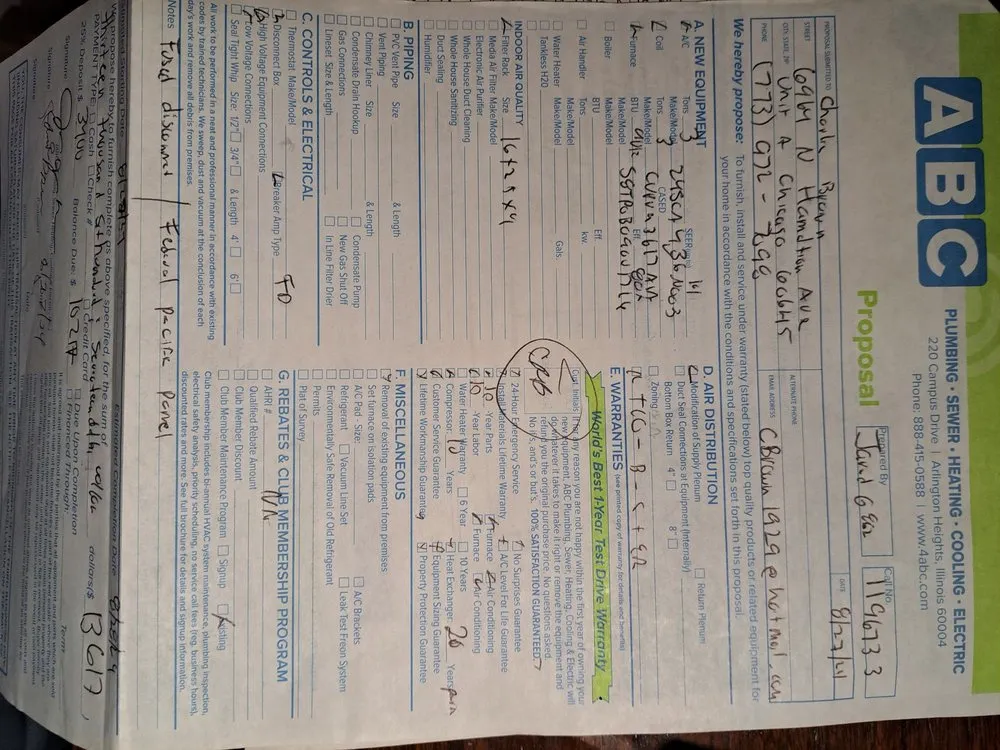 ABC
PLUMBING • SEWER • HEATING • COOLING • ELECTRIC
220 Campus Drive | Arlington Heights, Illinois 60004
Phone: 888-415-0588 | www.4abc.com
Proposal
Prepared By
Call No. 1196733
PROPOSAL SUBMITTED TO Charlie Brown
DATE 8/22/21
6941 N Hamilton Ave
CITY, STATE, ZIP Unit A Chicago 60645
ALTERNATE PHONE
PHONE (773) 972-7699
EMAIL ADDRESS CBrown1929@hotmail.com
We hereby propose: To furnish, install and service under warranty (stated below) top quality products or related equipment for
your home in accordance with the conditions and specifications set forth in this proposal.
A. NEW EQUIPMENT
A/C Tons 3 SEER 14
Make/Model
Coil Tons 3 CASED
Make/Model
Furnace BTU Eff. 80%
Make/Model
Boiler BTU Eff.
Make/Model
Air Handler Tons kw.
Make/Model
Water Heater Gals.
Make/Model
Tankless H20 Make/Model
INDOOR AIR QUALITY
Filter Rack Size 16x25x4
Media Air Filter Make/Model
Electronic Air Purifier
Whole House Duct Cleaning
Whole House Sanitizing
Duct Sealing
Humidifier
B. PIPING
PVC Vent Pipe Size & Length
Vent Piping
Chimney Liner Size & Length
Condensate Drain Hookup Condensate Pump
Gas Connections New Gas Shut Off
Lineset Size & Length In Line Filter Drier
C. CONTROLS & ELECTRICAL
Thermostat Make/Model
Disconnect Box Breaker Amp Type FD
High Voltage Equipment Connections
Low Voltage Connections
Seal Tight Whip Size 1/2" 3/4" & Length 4' 6'
All work to be performed in a neat and professional manner in accordance with existing
codes by trained technicians. We sweep, dust and vacuum at the conclusion of each
day's work and remove all debris from premises.
D. AIR DISTRIBUTION
Modification of Supply Plenum Return Plenum
Duct Seal Connections at Equipment (Internally)
Bottom Box Return 4" 8"
Zoning
E. WARRANTIES (see printed copy of warranty for details and benefits)
World's Best 1-Year Test Drive Warranty
Cust. Initials CRB If for any reason you are not happy within the first year of owning your
new equipment, ABC Plumbing, Sewer, Heating, Cooling & Electric will
do whatever it takes to make it right or remove the equipment and
refund you the original purchase price. No questions asked.
No if's, and's or but's. 100% SATISFACTION GUARANTEED.
24-Hour Emergency Service No Surprises Guarantee
Installed Materials Lifetime Warranty A/C Level For Life Guarantee
10 Years Parts Furnace Air Conditioning
Year Labor Furnace Air Conditioning
Water Heater Warranty 6 Year 10 Years
Compressor 10 Years Heat Exchanger 20 Years
Customer Service Guarantee Equipment Sizing Guarantee
Lifetime Workmanship Guarantee Property Protection Guarantee
F. MISCELLANEOUS
Removal of existing equipment from premises
Set furnace on isolation pads
A/C Pad Size: A/C Brackets
Refrigerant Vacuum Line Set Leak Test Freon System
Environmentally Safe Removal of Old Refrigerant
Permits
Plat of Survey
G. REBATES & CLUB MEMBERSHIP PROGRAM
AHRI #
Qualified Rebate Amount N/A
Club Member Discount
Club Member Maintenance Program Signup Existing
Club membership includes bi-annual HVAC system maintenance, plumbing inspection,
electrical safety analysis, priority scheduling, no service call fees (reg. business hours),
discounted rates and more. See full brochure for details and signup information.
Notes Fused disconnect / Federal pacific panel
We propose hereby to furnish complete as above specified, for the sum of
Thirteen thousand Six hundred Seventeen dollars/$ 13617
PAYMENT TYPE: Cash Check # Credit Card Due Upon Completion
25% Deposit $ 3400 Balance Due: $ 10217 Financed Through: Term
Signature
Signature